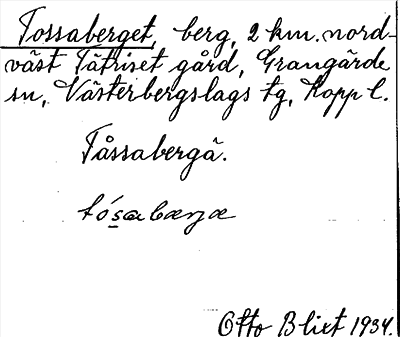 Tossaberget, berg, 2 km. nord-
väst Tätriset gård, Grangärde
sn, Västerbergslags tg, Kopp l.
Tåssabergä.
Otto Blixt 1934.